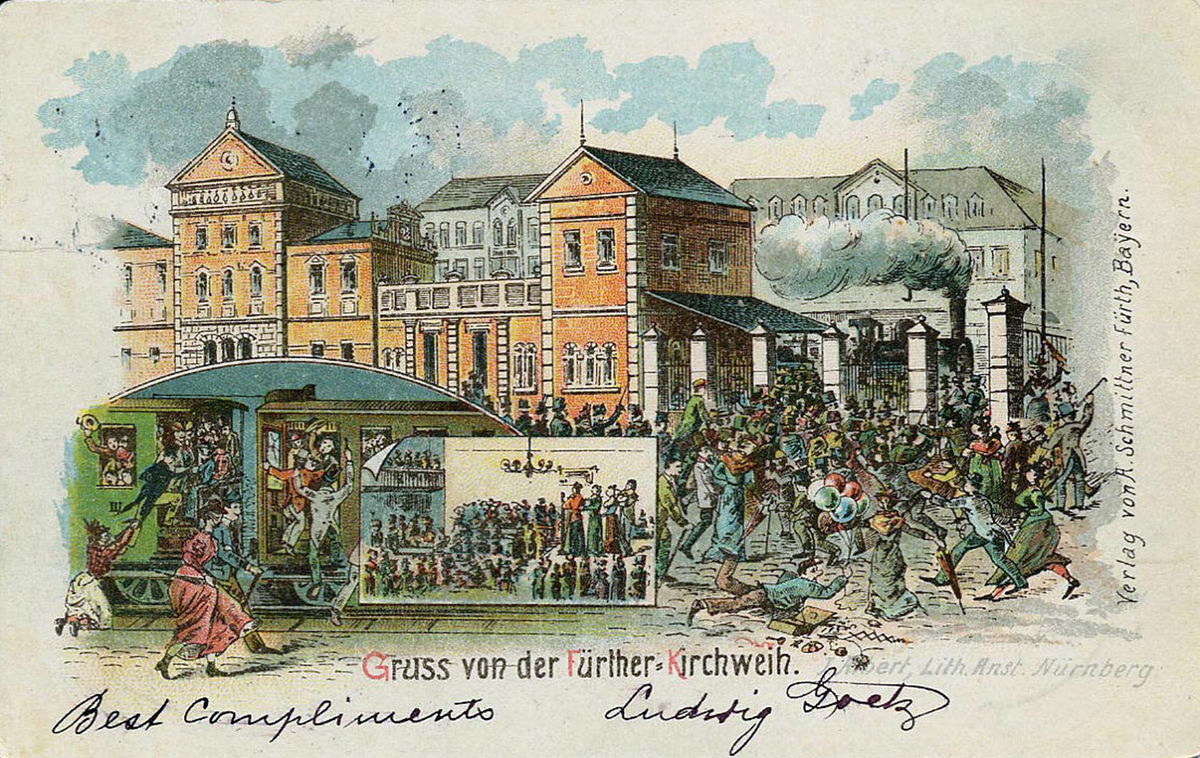 Gruss von der Fürther-Kirchweih.
J. Albert, Lith. Anst. Nürnberg
Best Compliments Ludwig Goetz
Verlag von A. Schmittner Fürth, Bayern.
III